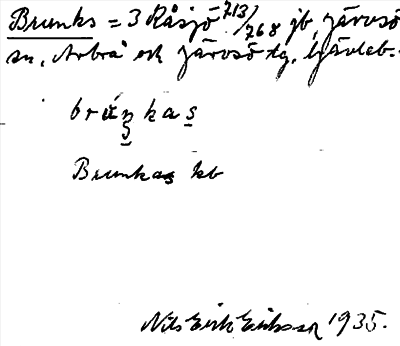 Brunks = 3 Råsjö 713/768 jb, Järvsö
sn, Arbrå ock Järvsö tg, Gävleb.
brúŋkas
Brunkas kb
Nils Erik Eriksson 1935.